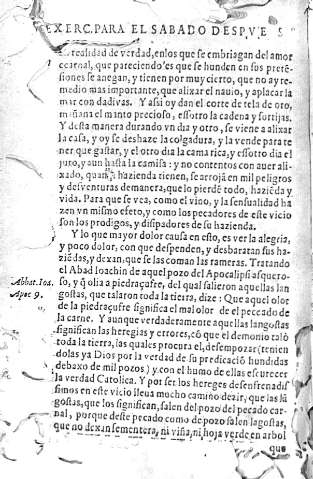 EXERC. PARA EL SABADO DESPVE S
realidad de verdad, enlos que se embriagan del amor
carnal, que pareciendo'es que se hunden en sus pretē-
siones se anegan, y tienen por muy cierto, que no ay re-
medio mas importante, que alixar el nauio, y aplacar la
mar con dadiuas. Y assi oy dan el corte de tela de oro,
mañana el manto precioso, essotro la cadena y sortijas.
Y desta manera durando vn dia y otro, se viene a alixar
la casa, y oy se deshaze la colgadura, y la vende para te
ner que gastar, y el otro dia la cama rica, y essotro dia el
juro, y aun hasta la camisa: y no contentos con auer ali-
xado, quanta hazienda tienen, se arrojā en mil peligros
y desventuras demanera, que lo pierdē todo, haziēda y
vida. Para que se vea, como el vino, y la sensualidad ha
zen vn mismo efeto, y como los pecadores de este vicio
son los prodigos, y disipadores de su hazienda.
Y lo que mayor dolor causa en esto, es ver la alegria,
y poco dolor, con que despenden, y desbaratan sus ha-
ziēdas, y dexan, que se las coman las rameras. Tratando
el Abad Ioachin de aquel pozo del Apocalipsi asquero-
so, y q̄ olia a piedraçufre, del qual salieron aquellas lan
gostas, que talaron toda la tierra, dize: Que aquel olor
de la piedraçufre significa el mal olor de el peccado de
la carne. Y aunque verdaderamente aquellas langostas
significan las heregias y errores, cō que el demonio talò
toda la tierra, las quales procura el, desempozar (tenien
dolas ya Dios por la verdad de su predicaciō hundidas
debaxo de mil pozos) y con el humo de ellas escurecer
la verdad Catolica. Y por ser los hereges desenfrenadis
simos en este vicio lleua mucho camino dezir, que las lā
gostas, que los significan, salen del pozo del pecado car-
nal, porque deste pecado como de pozo salen lāgostas,
que no dexan sementera, ni viña, ni hoja verde en arbol
que
Abbat. Ioa.
Apoc. 9.